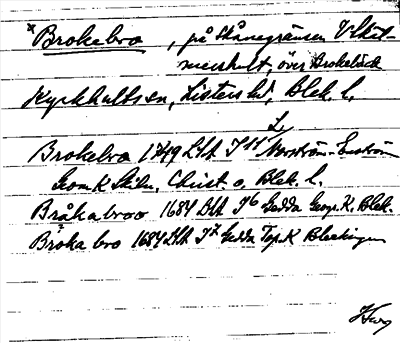 *Brokebro, på Skånegränsen V Slät-
meshult, över Brokebäck
Kyrkhults sn, Listers hd, Blek. l.
Brokebro 1749 LSA I 11 Norström-Enström
Geom K Skåne, Christ. o, Blek. l.
Bråkabroo 1684 LSA I 6 Gedda Geogr. K. Blek.
Broka bro 1684 LSA I 7 Gedda Top. K Bleckingen